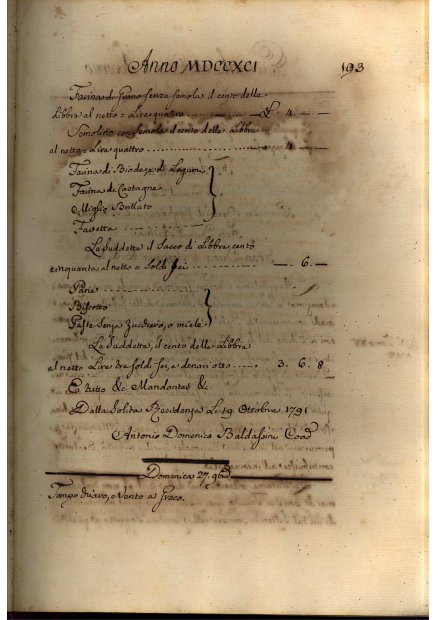 Anno MDCCXCI 193
Farina di Grano senza semola il cento delle
Libbra al netto = Lire quattro - £ 4 -
Semolino con semola il cento delle Libbra
al netto = Lire quattro - 4 -
Farina di Biade, e di Legumi
Farina di Castagne
Miglio Brillato
Favetta
Le suddette il Sacco di Libbra cento
cinquanta al netto a soldi sei - 6 -
Pane
Biscotto
Paste senza Zucchero, o miele
Le suddette, il cento delle Libbra
al netto Lire tre soldi sei, e denari otto 3. 6. 8
E tutto &c. Mandantes &c
Dalla Solita Residenza Li 19. Ottobre 1791
Antonio Domenico Baldasini Coad
Domenica 27. 9bre
Tempo vario, e Vento a Greco.